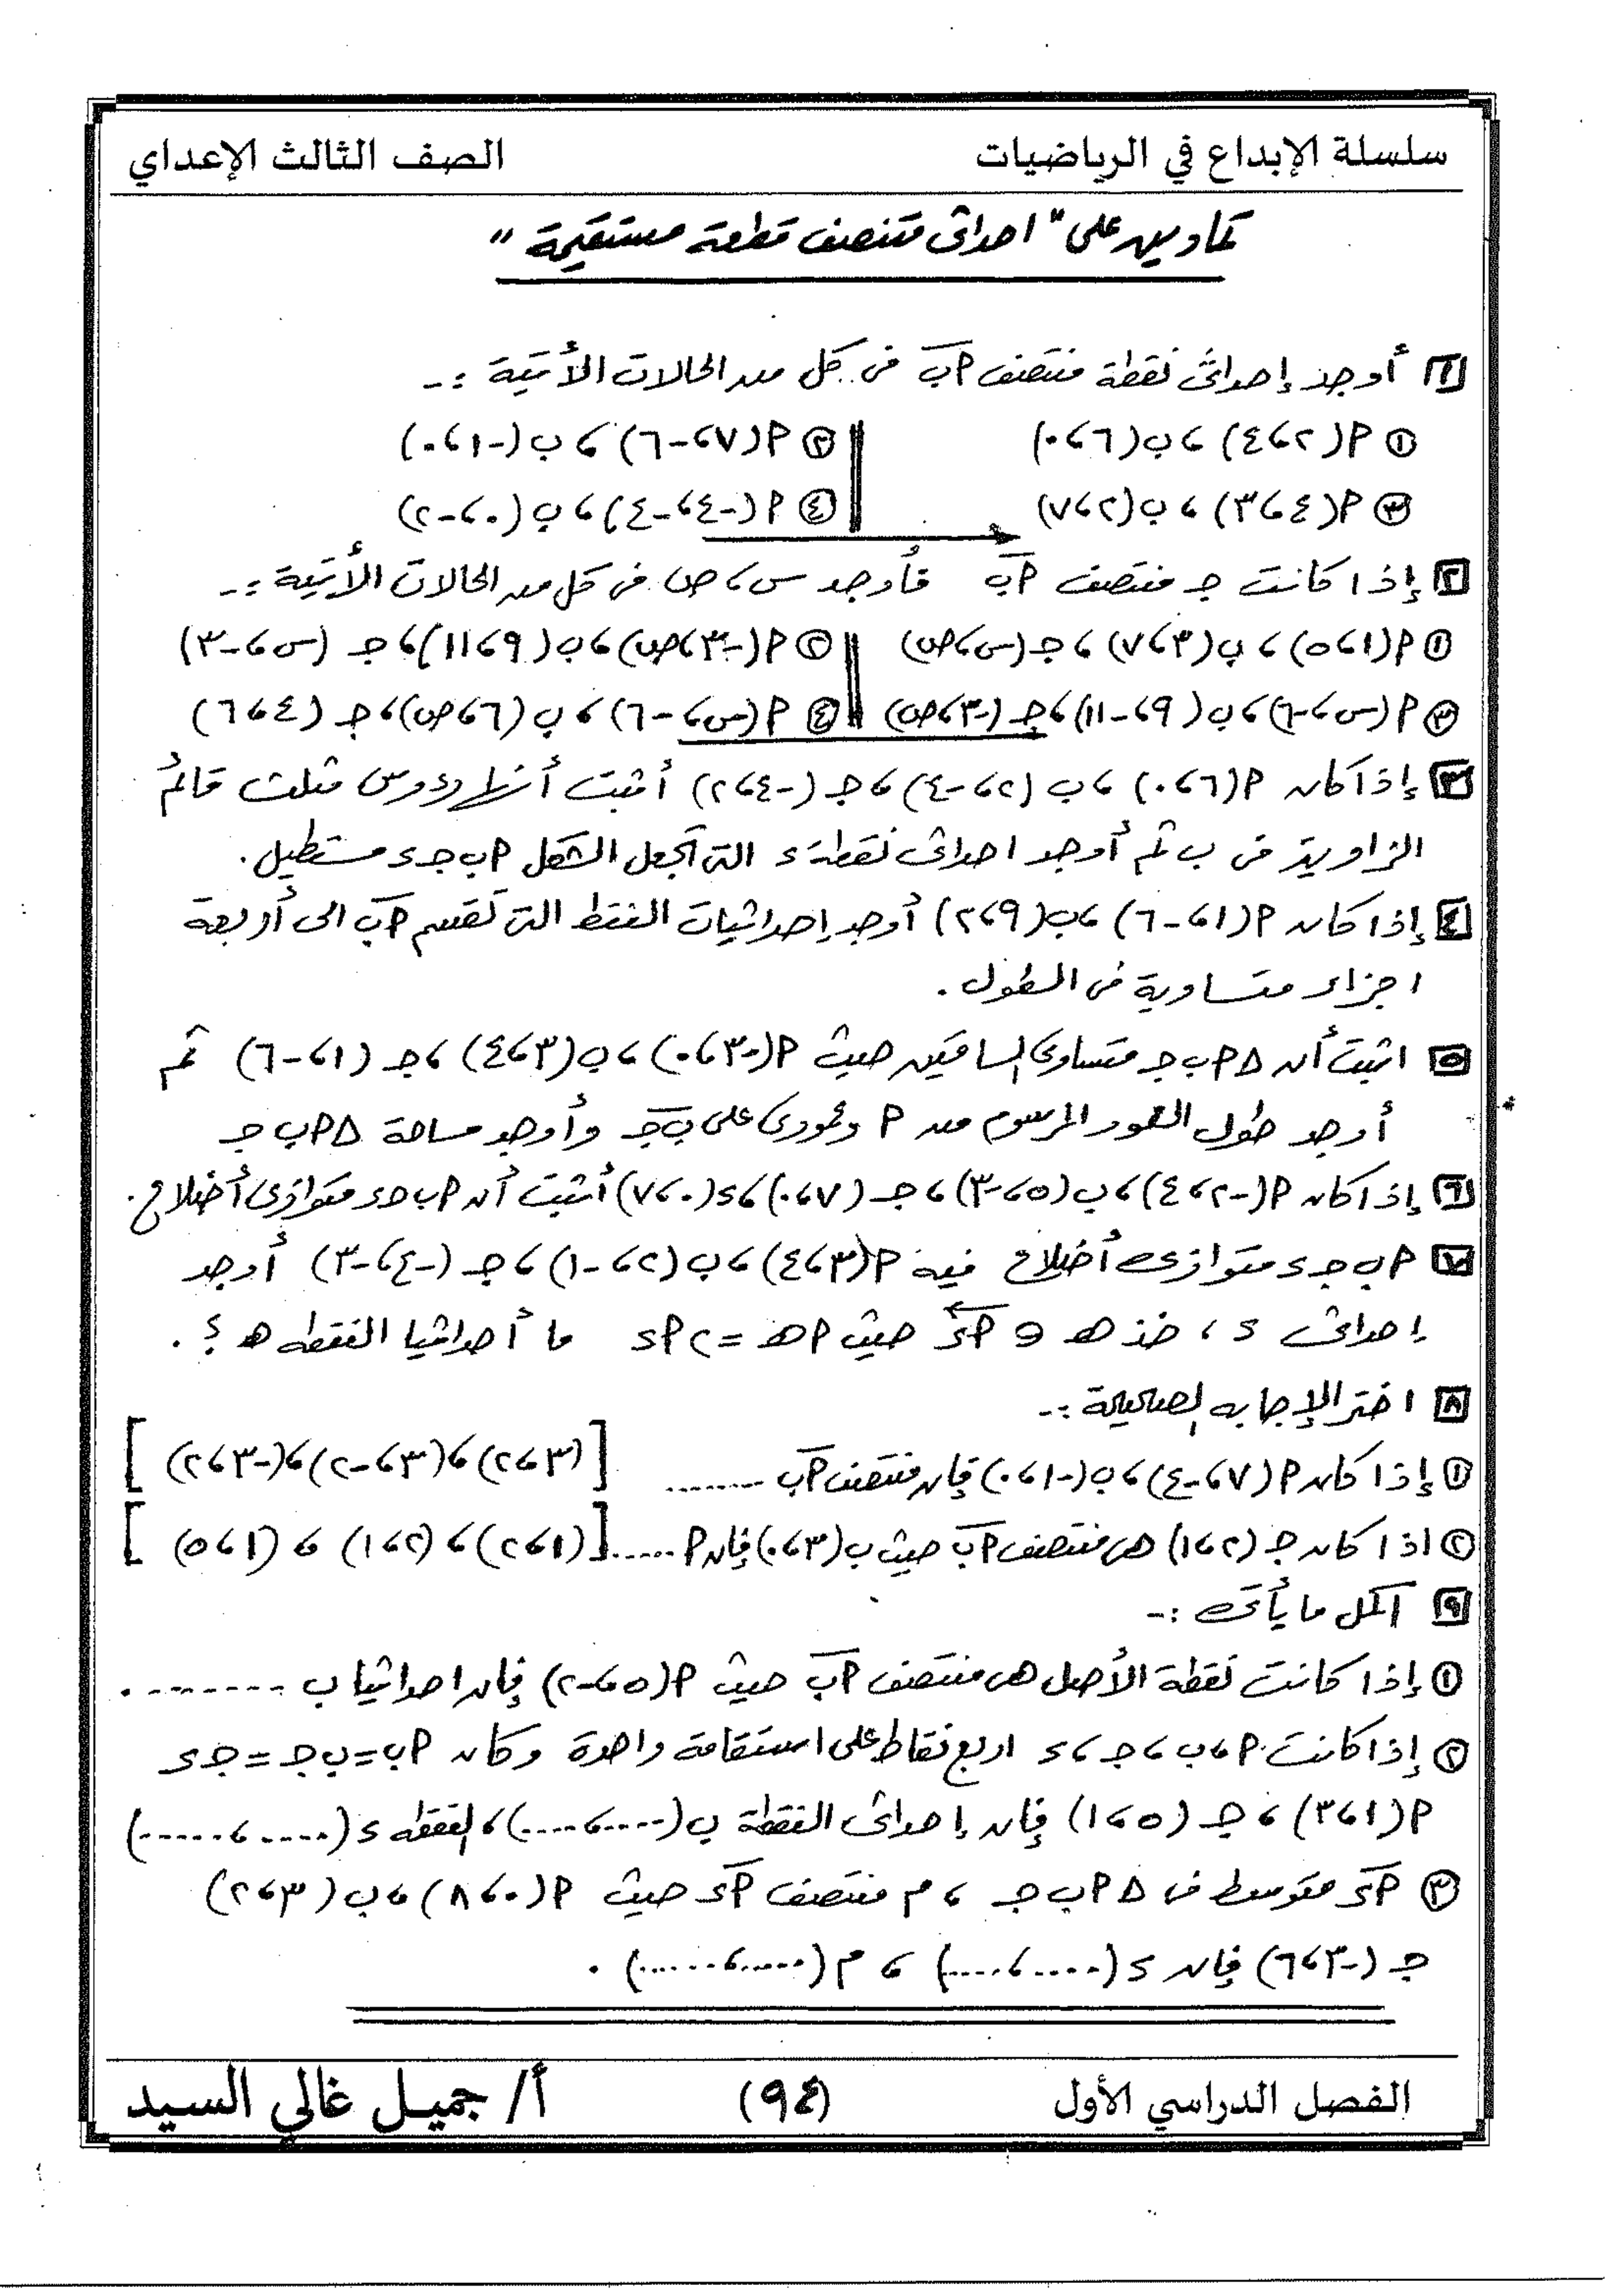 سلسلة الإبداع في الرياضيات
الصف الثالث الإعداي
تمارين على " احداثى منتصف قطعة مستقيمة "
[١] أوجد إحداثى نقطة منتصف أب فى كل من الحالات الأتية :-
① أ(٢، ٤) ، ب(٦، ٠)
② أ(٧، -٦) ، ب(-١، ٠)
③ أ(٤، ٣) ، ب(٢، ٧)
④ أ(-٤، -٤) ، ب(٠، -٢)
[٢] إذا كانت جـ منتصف أب فأوجد س ، ص فى كل من الحالات الأتية :-
① أ(١، ٥) ، ب(٣، ٧) ، جـ(س، ص)
② أ(-٣، ص) ، ب(٩، ١١) ، جـ (س، -٣)
③ أ(س، -٦) ، ب(٩، -١١) ، جـ(-٣، ص)
④ أ(س، -٦) ، ب(٦، ص) ، جـ (٤، ٦)
[٣] إذا كان أ(٦، ٠) ، ب (٢، -٤) ، جـ (-٤، ٢) أثبت أنها رءوس مثلث قائم
الزاوية فى ب ثم أوجد احداثى نقطة ء التى تجعل الشكل أ ب جـ ء مستطيل .
[٤] إذا كان أ(١، -٦) ، ب(٩، ٢) أوجد إحداثيات النقط التى تقسم أب الى أربعة
اجزاء متساوية فى الطول .
[٥] اثبت أن Δ أ ب جـ متساوى الساقين حيث أ(-٣، ٠) ، ب(٣، ٤) ، جـ (١، -٦) ثم
أوجد طول العمود المرسوم من أ وعمودى على ب جـ وأوجد مساحة Δ أ ب جـ
[٦] إذا كان أ(-٢، ٤) ، ب(٥، -٣) ، جـ (٧، ٠) ، ء(٠، ٧) أثبت أن أ ب جـ ء متوازى أضلاع .
[٧] أ ب جـ ء متوازى أضلاع فيه أ(٣، ٤) ، ب (٢، -١) ، جـ (-٤، -٣) أوجد
إحداثى ء ، خذ هـ ∈ أء حيث أهـ = ٢أء ما أحداثيا النقطه هـ ؟ .
[٨] اختر الإجابه الصحيحة :-
① إذا كان أ(٧، -٤) ، ب(-١، ٠) فإن منتصف أب ........ [(٣، ٢) ، (٣، -٢) ، (-٣، ٢)]
② اذا كان جـ (٢، ١) هى منتصف أب حيث ب(٣، ٠) فإن أ ...... [(١، ٢) ، (٢، ١) ، (١، ٥)]
[٩] اكمل ما يأتى :-
① إذا كانت نقطة الأصل هى منتصف أب حيث أ(٥، -٢) فإن احداثيا ب ........ .
② إذا كانت أ ، ب ، جـ ، ء اربع نقاط على استقامة واحدة وكان أب = ب جـ = جـ ء
أ(١، ٣) ، جـ (٥، ١) فإن إحداثى النقطة ب (.....،.....) ، النقطه ء (.....،......)
③ أء متوسط فى Δ أ ب جـ ، م منتصف أء حيث أ(٠، ٨) ، ب(٣، ٢)
جـ (-٣، ٦) فإن ء (.....،.....) ، م (......،......) .
الفصل الدراسي الأول
(٩٤)
أ/ جميل غالي السيد